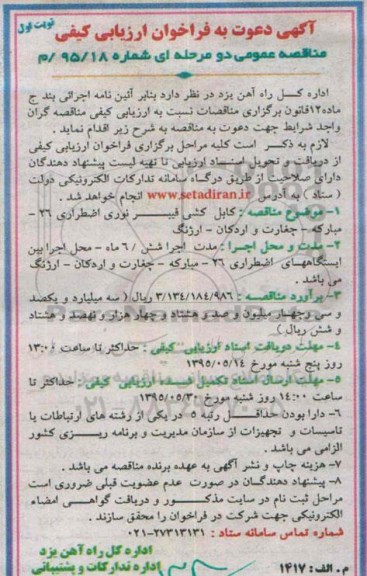 نوبت اول
آگهی دعوت به فراخوان ارزیابی کیفی
مناقصه عمومی دو مرحله ای شماره ۹۵/۱۸ /م
اداره کل راه آهن یزد در نظر دارد بنابر آئین نامه اجرائی بند ج
ماده۱۲قانون برگزاری مناقصات نسبت به ارزیابی کیفی مناقصه گران
واجد شرایط جهت دعوت به مناقصه به شرح زیر اقدام نماید .
لازم به ذکر است کلیه مراحل برگزاری فراخوان ارزیابی کیفی
از دریافت و تحویل اسناد ارزیابی تا تهیه لیست پیشنهاد دهندگان
دارای صلاحیت از طریق درگاه سامانه تدارکات الکترونیکی دولت
( ستاد ) به آدرس www.setadiran.ir انجام خواهد شد .
۱- موضوع مناقصه : کابل کشی فیبر نوری اضطراری ۲۶ -
مبارکه - چغارت و اردکان - ارژنگ
۲- مدت و محل اجرا : مدت اجرا شش / ۶ ماه - محل اجرا بین
ایستگاههای اضطراری ۲۶ - مبارکه - چغارت و اردکان - ارژنگ
می باشد .
۳- برآورد مناقصه : ۳/۱۳۴/۱۸۴/۹۸۶ ریال ( سه میلیارد و یکصد
و سی وچهار میلیون و صد و هشتاد و چهار هزار و نهصد و هشتاد
و شش ریال )
۴- مهلت دریافت اسناد ارزیابی کیفی : حداکثر تا ساعت ۱۳:۰۰
روز پنج شنبه مورخ ۱۳۹۵/۰۵/۱۴
۵- مهلت ارسال اسناد تکمیل شده ارزیابی کیفی : حداکثر تا
ساعت ۱۴:۰۰ روز شنبه مورخ ۱۳۹۵/۰۵/۳۰
۶- دارا بودن حداقل رتبه ۵ در یکی از رشته های ارتباطات یا
تاسیسات و تجهیزات از سازمان مدیریت و برنامه ریزی کشور
الزامی می باشد .
۷- هزینه چاپ و نشر آگهی به عهده برنده مناقصه می باشد .
۸- پیشنهاد دهندگان در صورت عدم عضویت قبلی ضروری است
مراحل ثبت نام در سایت مذکور و دریافت گواهی امضاء
الکترونیکی جهت شرکت در فراخوان را محقق سازند .
شماره تماس سامانه ستاد : ۲۷۳۱۳۱۳۱-۰۲۱
اداره کل راه آهن یزد
اداره تدارکات و پشتیبانی
م . الف : ۱۴۱۷